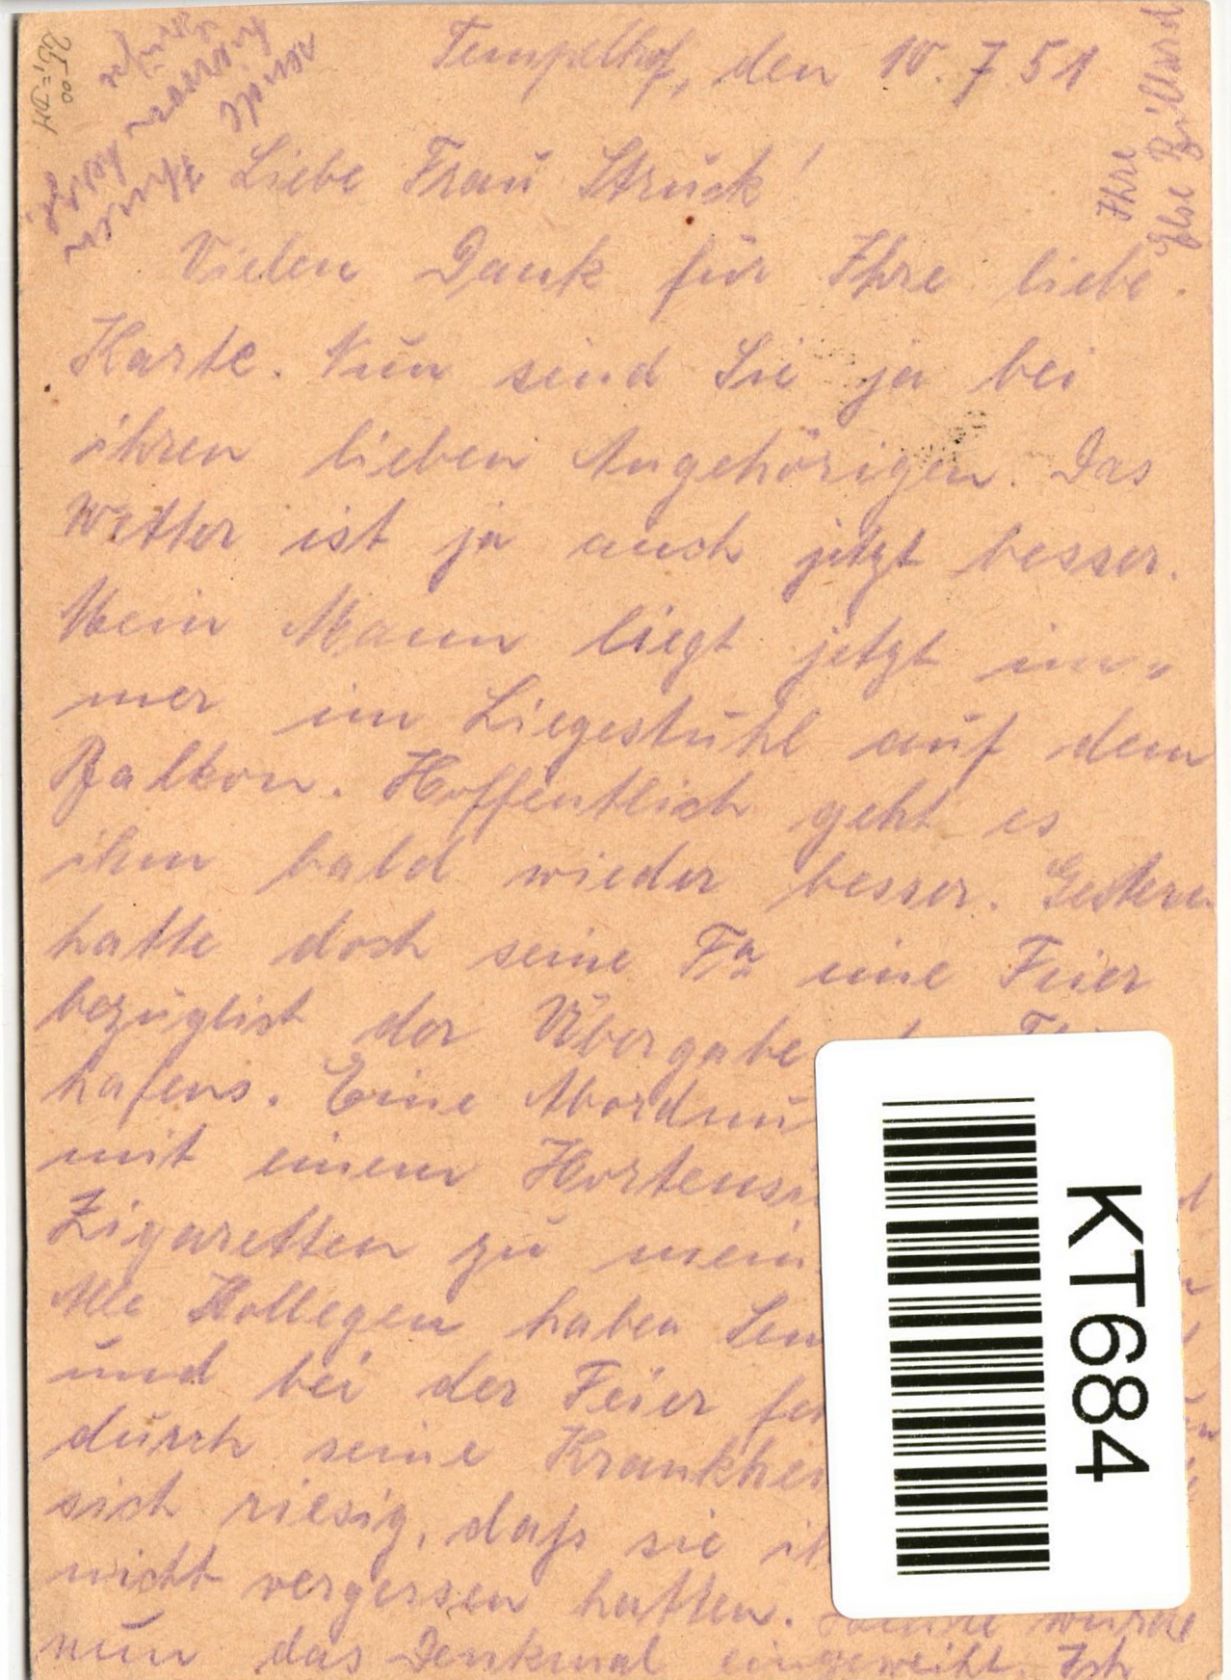 Tempelhof, den 10. 7 51
Liebe Frau Struck!
Vielen Dank für Ihre liebe
Karte. Nun sind Sie ja bei
ihren lieben Angehörigen. Das
Wetter ist ja auch jetzt besser.
Mein Mann liegt jetzt im„
mer im Liegestuhl auf dem
Balkon. Hoffentlich geht es
ihm bald wieder besser. Gestern
hatte doch seine Fa eine Feier
bezüglich der Übergabe
hafens. Eine Abordnu
mit einem Hortensi
Zigaretten zu mein
Alle Kollegen haben
und bei der Feier
durch seine Krankhei
sich riesig, daß sie
nicht vergessen hatten. wurde
nun das Denkmal eingeweiht. Ich
Ihre
Else
KT684